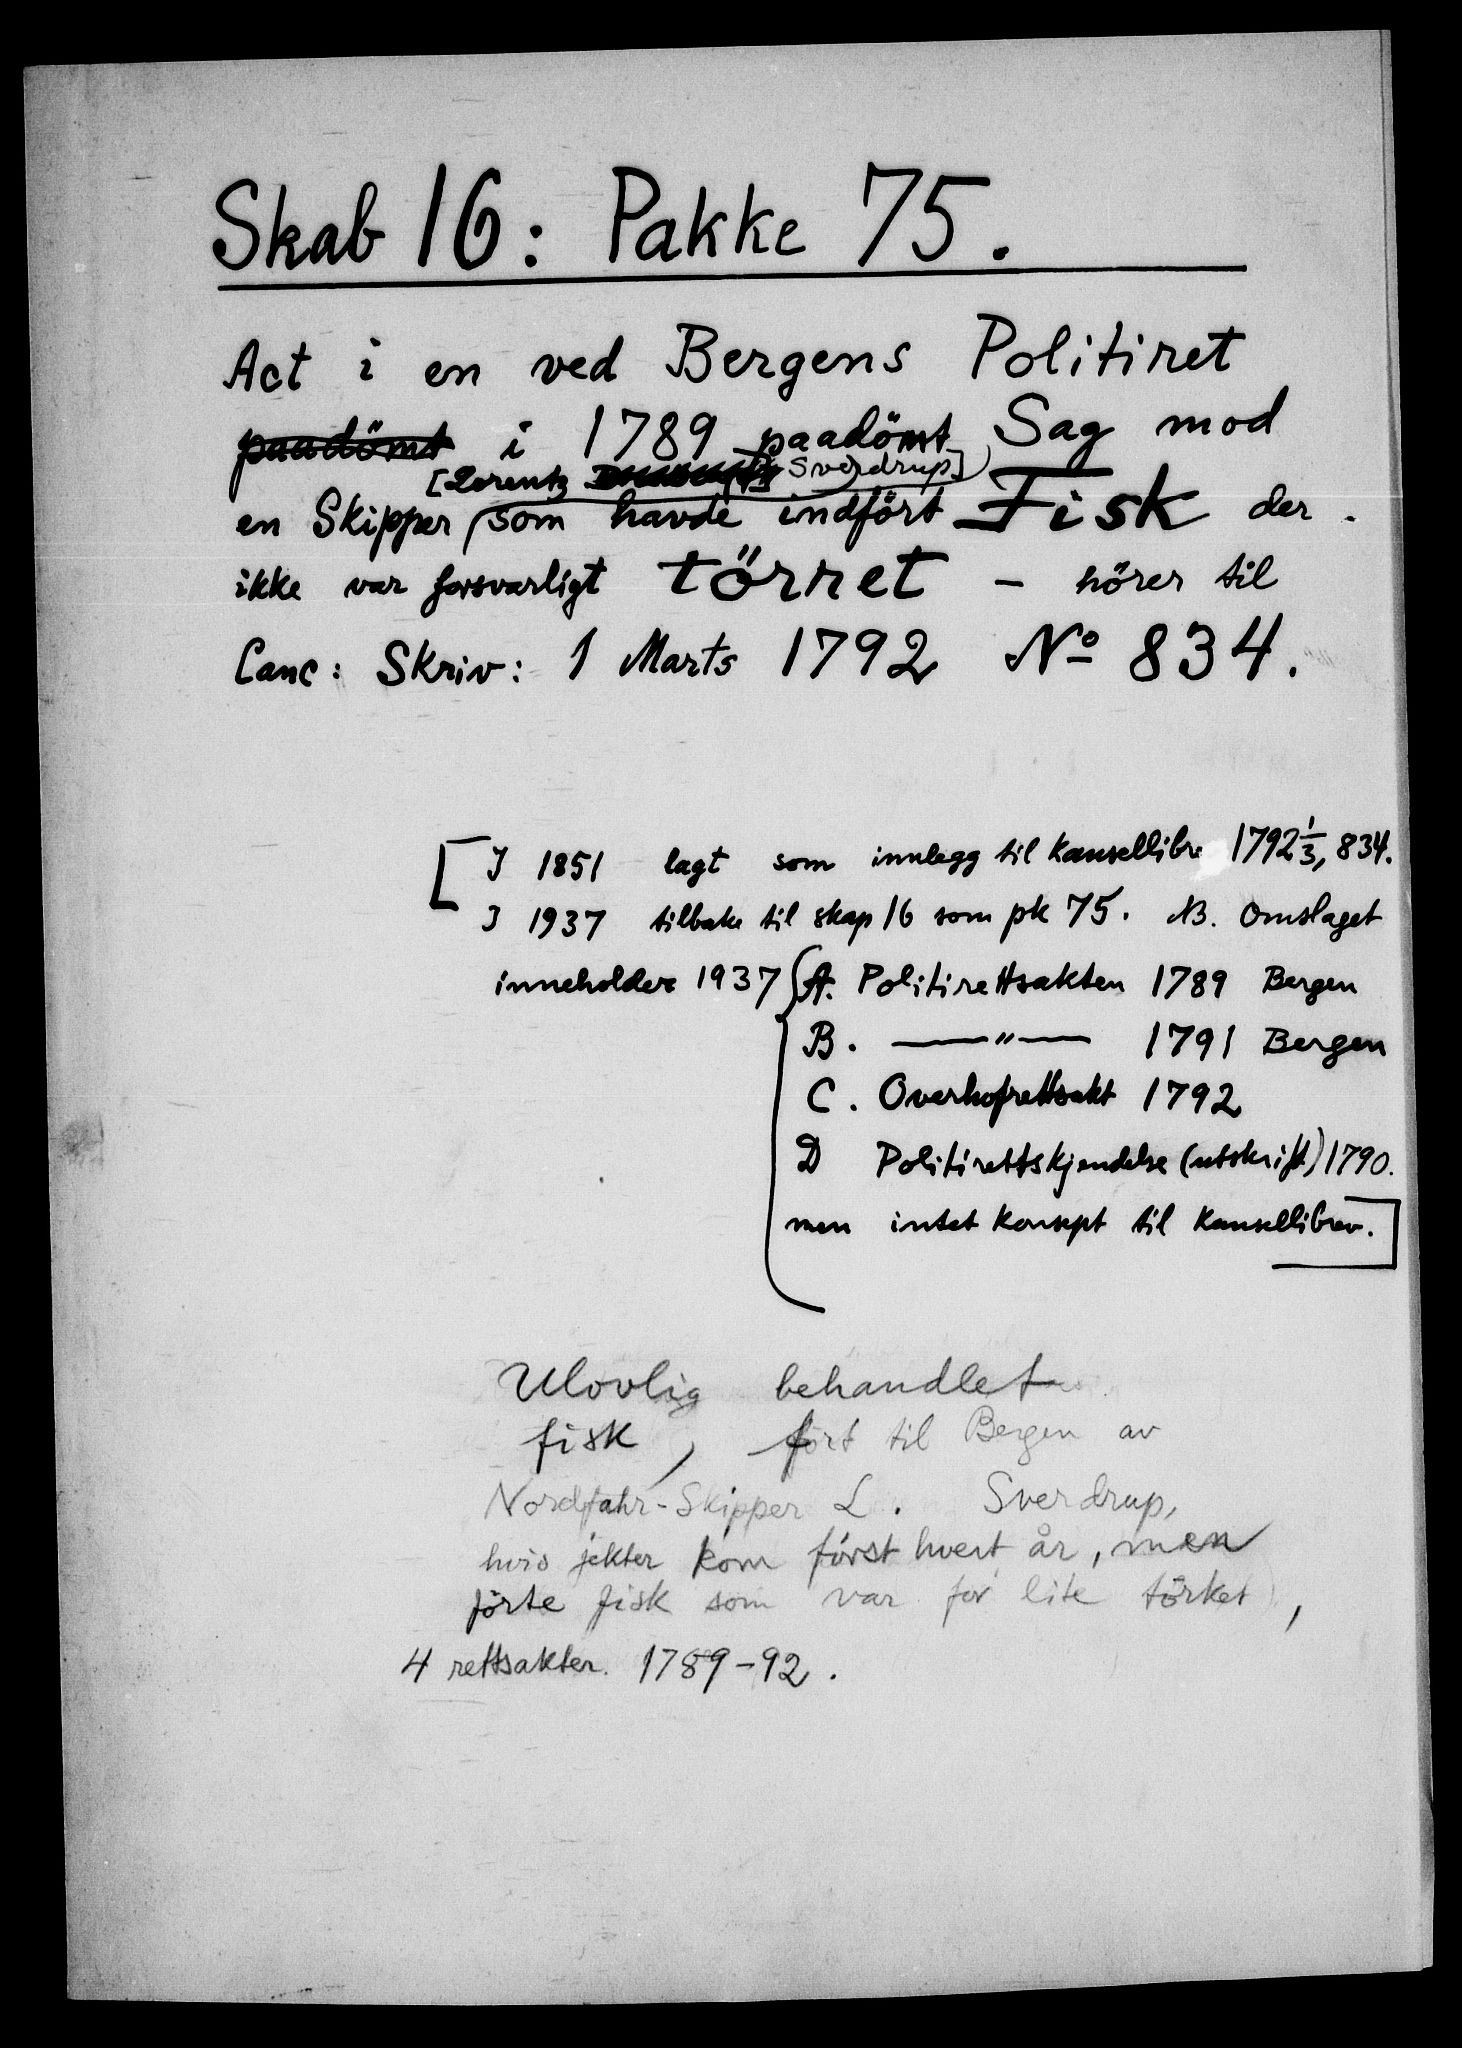 Skab 16: Pakke 75.
Act i en ved Bergens Politiret
paadömt i 1789 paadömt Sag mod
[Lorentz Sverdrup]
en Skipper som havde indfört Fisk der
ikke var forsvarligt törret – hörer til
Canc: Skriv: 1 Marts 1792 No 834.
[I 1851 lagt som innlegg til Kansellibre 1792 1/3, 834.
I 1937 tilbake til skap 16 som pk 75. NB. Omslaget
inneholder 1937 { A. Politirettsakten 1789 Bergen
B. —"— 1791 Bergen
C. Overhofrettsakt 1792
D Politirettskjendelse (utskrift) 1790.
men intet Konsept til Kansellibrev.]
Ulovlig behandlet
fisk, fört til Bergen av
Nordfahr-Skipper L. Sverdrup,
hvis jekter kom först hvert år, men
förte fisk som var for lite törket,
4 rettsakter. 1789–92.